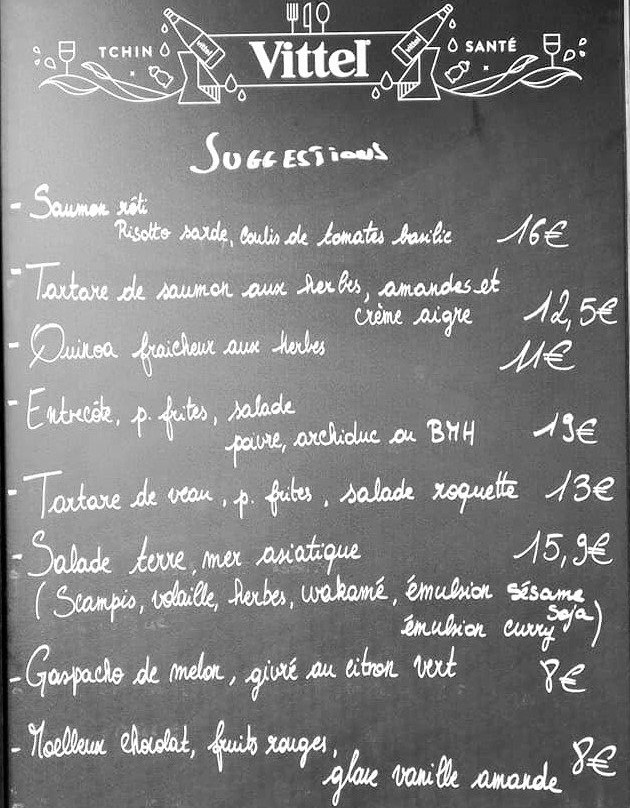 TCHIN Vittel SANTÉ
vittel vittel
SUGGESTIONS
- Saumon rôti
Risotto sarde, coulis de tomates basilic 16€
- Tartare de saumon aux herbes, amandes et
crème aigre 12,5€
- Quinoa fraicheur aux herbes 11€
- Entrecôte, p. frites, salade
poivre, archiduc ou BMH 19€
- Tartare de veau, p. frites, salade roquette 13€
- Salade terre, mer asiatique 15,9€
(Scampis, volaille, herbes, wakamé, émulsion sésame
soja
émulsion curry)
- Gaspacho de melon, givré au citron vert 8€
- Moelleux chocolat, fruits rouges,
glace vanille amande 8€